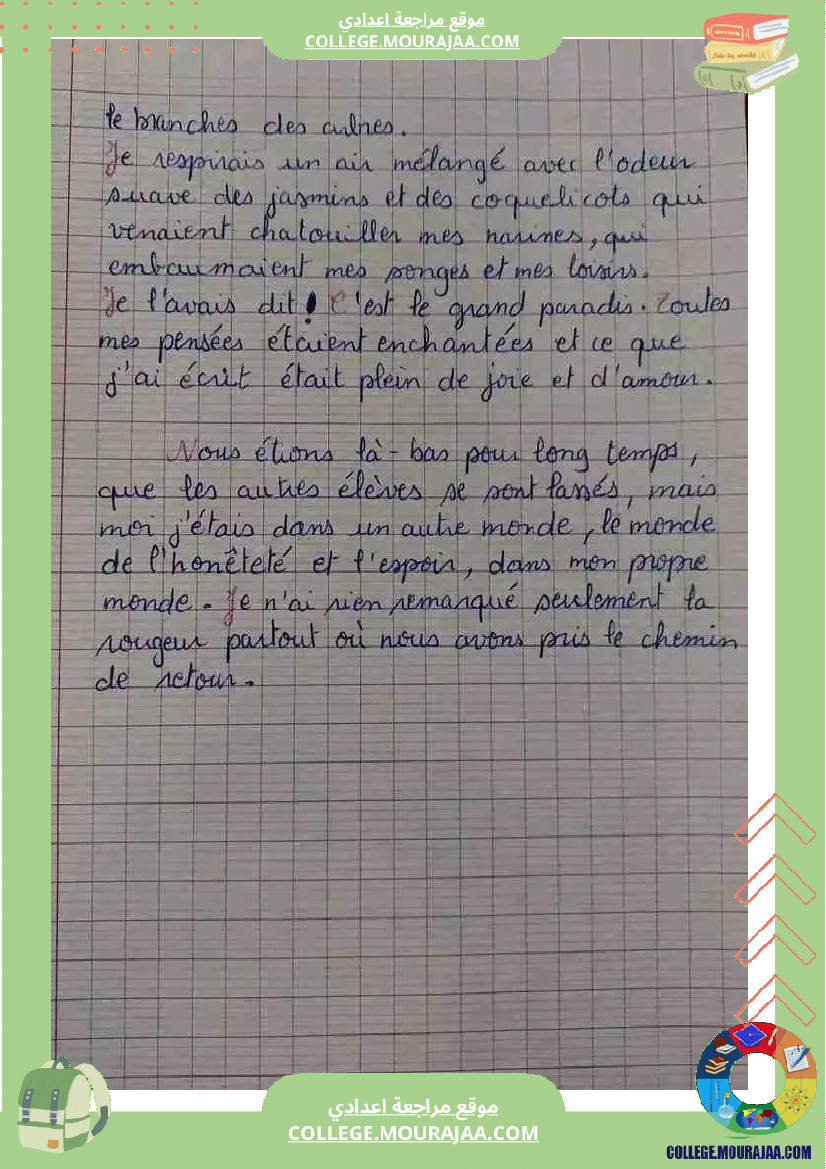 موقع مراجعة اعدادي
COLLEGE.MOURAJAA.COM
le branches des aulnes.
Je respirais un air mélangé avec l'odeur
suave des jasmins et des coquelicots qui
venaient chatouiller mes narines, qui
embaumaient mes songes et mes loisirs.
Je l'avais dit! C'est le grand paradis. Toutes
mes pensées étaient enchantées et ce que
j'ai écrit était plein de joie et d'amour.
Nous étions là-bas pour long temps,
que les autres élèves se sont lassés, mais
moi j'étais dans un autre monde, le monde
de l'honêteté et l'espoir, dans mon propre
monde. Je n'ai rien remarqué seulement la
rougeur partout où nous avons pris le chemin
de retour.
موقع مراجعة اعدادي
COLLEGE.MOURAJAA.COM
COLLEGE.MOURAJAA.COM